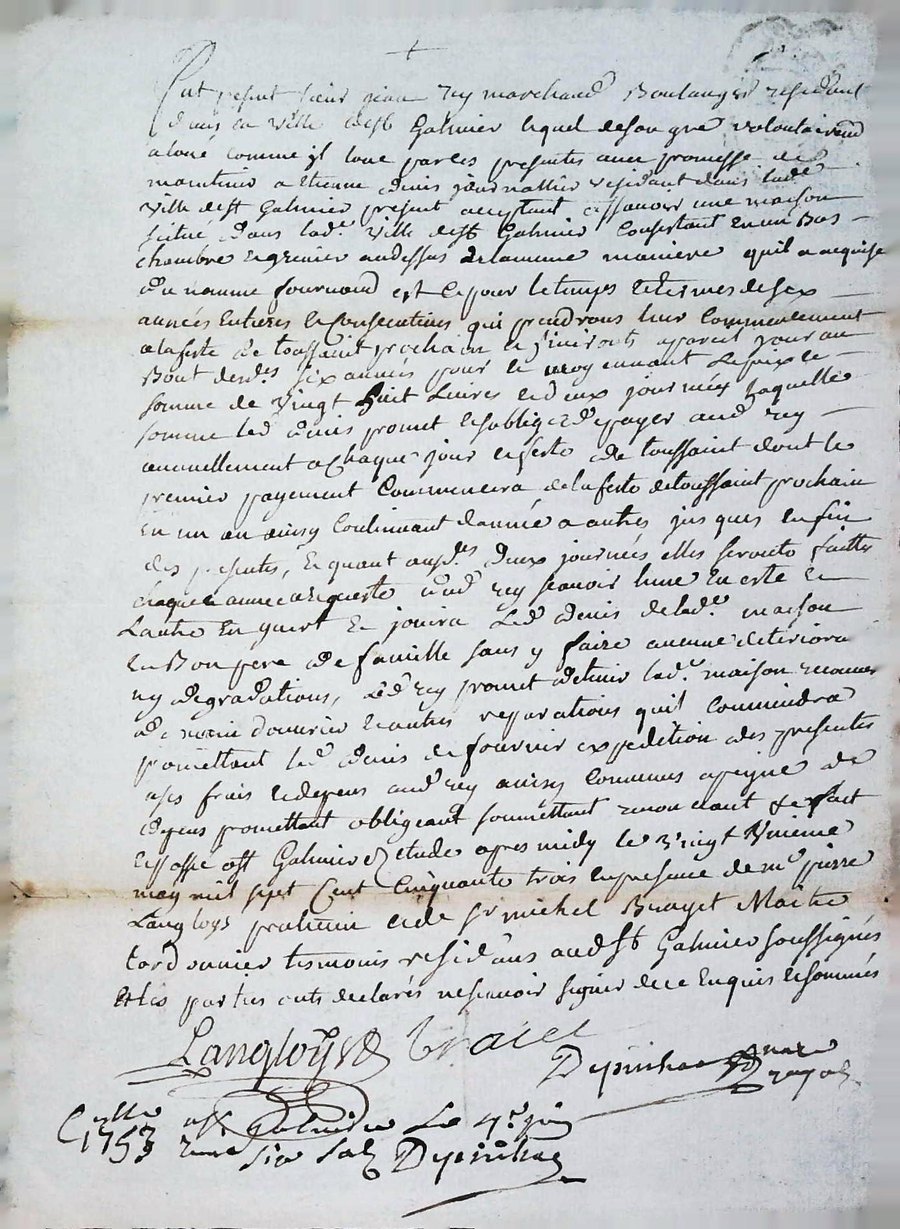 fut present sieur jean rey marchand Boulanger residant
dans la ville de st Galmier lequel deson gré volontairemt
aloué comme jl loue par les presentes avec promesse de
maintenir a Etienne denis journallier residant dans lade
ville de st Galmier present acceptant assavoir une maison
scitué dans lade ville de st Galmier Consistant en un Bas
chambre et grenier audessus de la meme maniere quil a acquise
du nommé fournand est ce pour le temps et termes de six
années Entieres et Consecutives qui prendrons leur commencement
a la feste de toussaint prochain et finiront apareil jour au
Bout desds six années pour et moyennant le prix et
somme de vingt huit Livres et deux journées laquelle
somme led denis promet et soblige de payer aud rey
annuellement a chaque jour et feste de toussaint dont le
premier payement Commencera de la feste de toussaint prochain
en un an ainsy Continuant dannée a autres jusques en fin
des presentes, Et quant auxds deux journées elles seronts faittes
chaque année a la requeste dud rey scavoir lune en esté et
Lautre En yvert et jouira Led denis de lade maison
en Bon pere de famille sans y faire aucune deteriora
ny degradations, Led rey promet de tenir lade maison
de main d'ouvrier et autres reparations quil conviendra
promettant led denis de fournir expedition des presentes
a ses frais et depens aud rey ainsy Convenus apeigne de
depens promettant obligeant soumettant renonceant & fait
et passé a st Galmier etude apres midy le vingt
may mil sept Cent Cinquante trois en presence de me pierre
Langloys praticien et de sr michel Brayet Maitre
Cordonnier tesmoins residans aud st Galmier soussignés
et les parties onts declarés ne scavoir signer de ce Enquis et sommés
Langloys Brait
Depinhac nore royal
Cllé a st Galmier Le 4e juin
1753 Depinhac